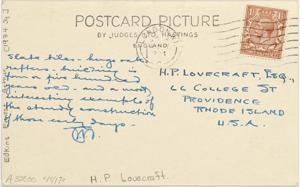 POSTCARD PICTURE
BY JUDGES LTD., HASTINGS
ENGLAND
Slate tiles - big oak
rafters - building is
four or five hundred
years old - and a most
interesting example of
the sturdy construction
of those early days.
H.P. LOVECRAFT, ESQ.,
66 COLLEGE ST
PROVIDENCE
RHODE ISLAND
U.S.A.
H.P. Lovecraft.